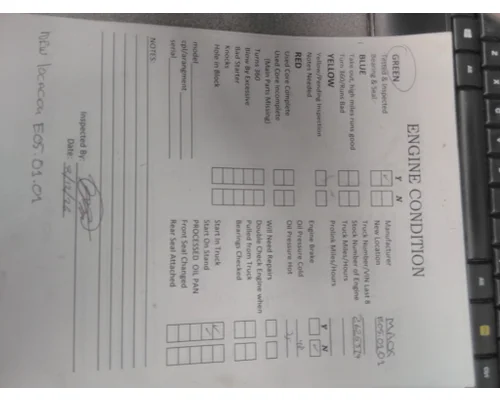 ENGINE CONDITION
GREEN
Tested & Inspected
Bearing & Seal
BLUE
Take out, high miles runs good
Turn 360/Runs Bad
YELLOW
Yellow/Pending Inspection
Notes Needed
RED
Used Core Complete
Used Core Incomplete
(Main Parts Missing)
Turns 360
Blow By Excessive
Bad Starter
Knocks
Hole in Block
model
cpl/arrangment
serial
NOTES:
Y N
Manufacturer MACK
New Location E05.01.01
Truck Number/VIN Last 8
Stock Number of Engine
Truck Miles/Hours
Prolink Miles/Hours
Y N
Engine Brake
Oil Pressure Cold
Oil Pressure Hot
Will Need Repairs
Double Check Engine when
Pulled from Truck
Bearings Checked
Start In Truck
Start On Stand
PROCESSED OIL PAN
Front Seal Changed
Rear Seal Attached
Inspected By:
Date:
New Location E05.01.01
Ctrl